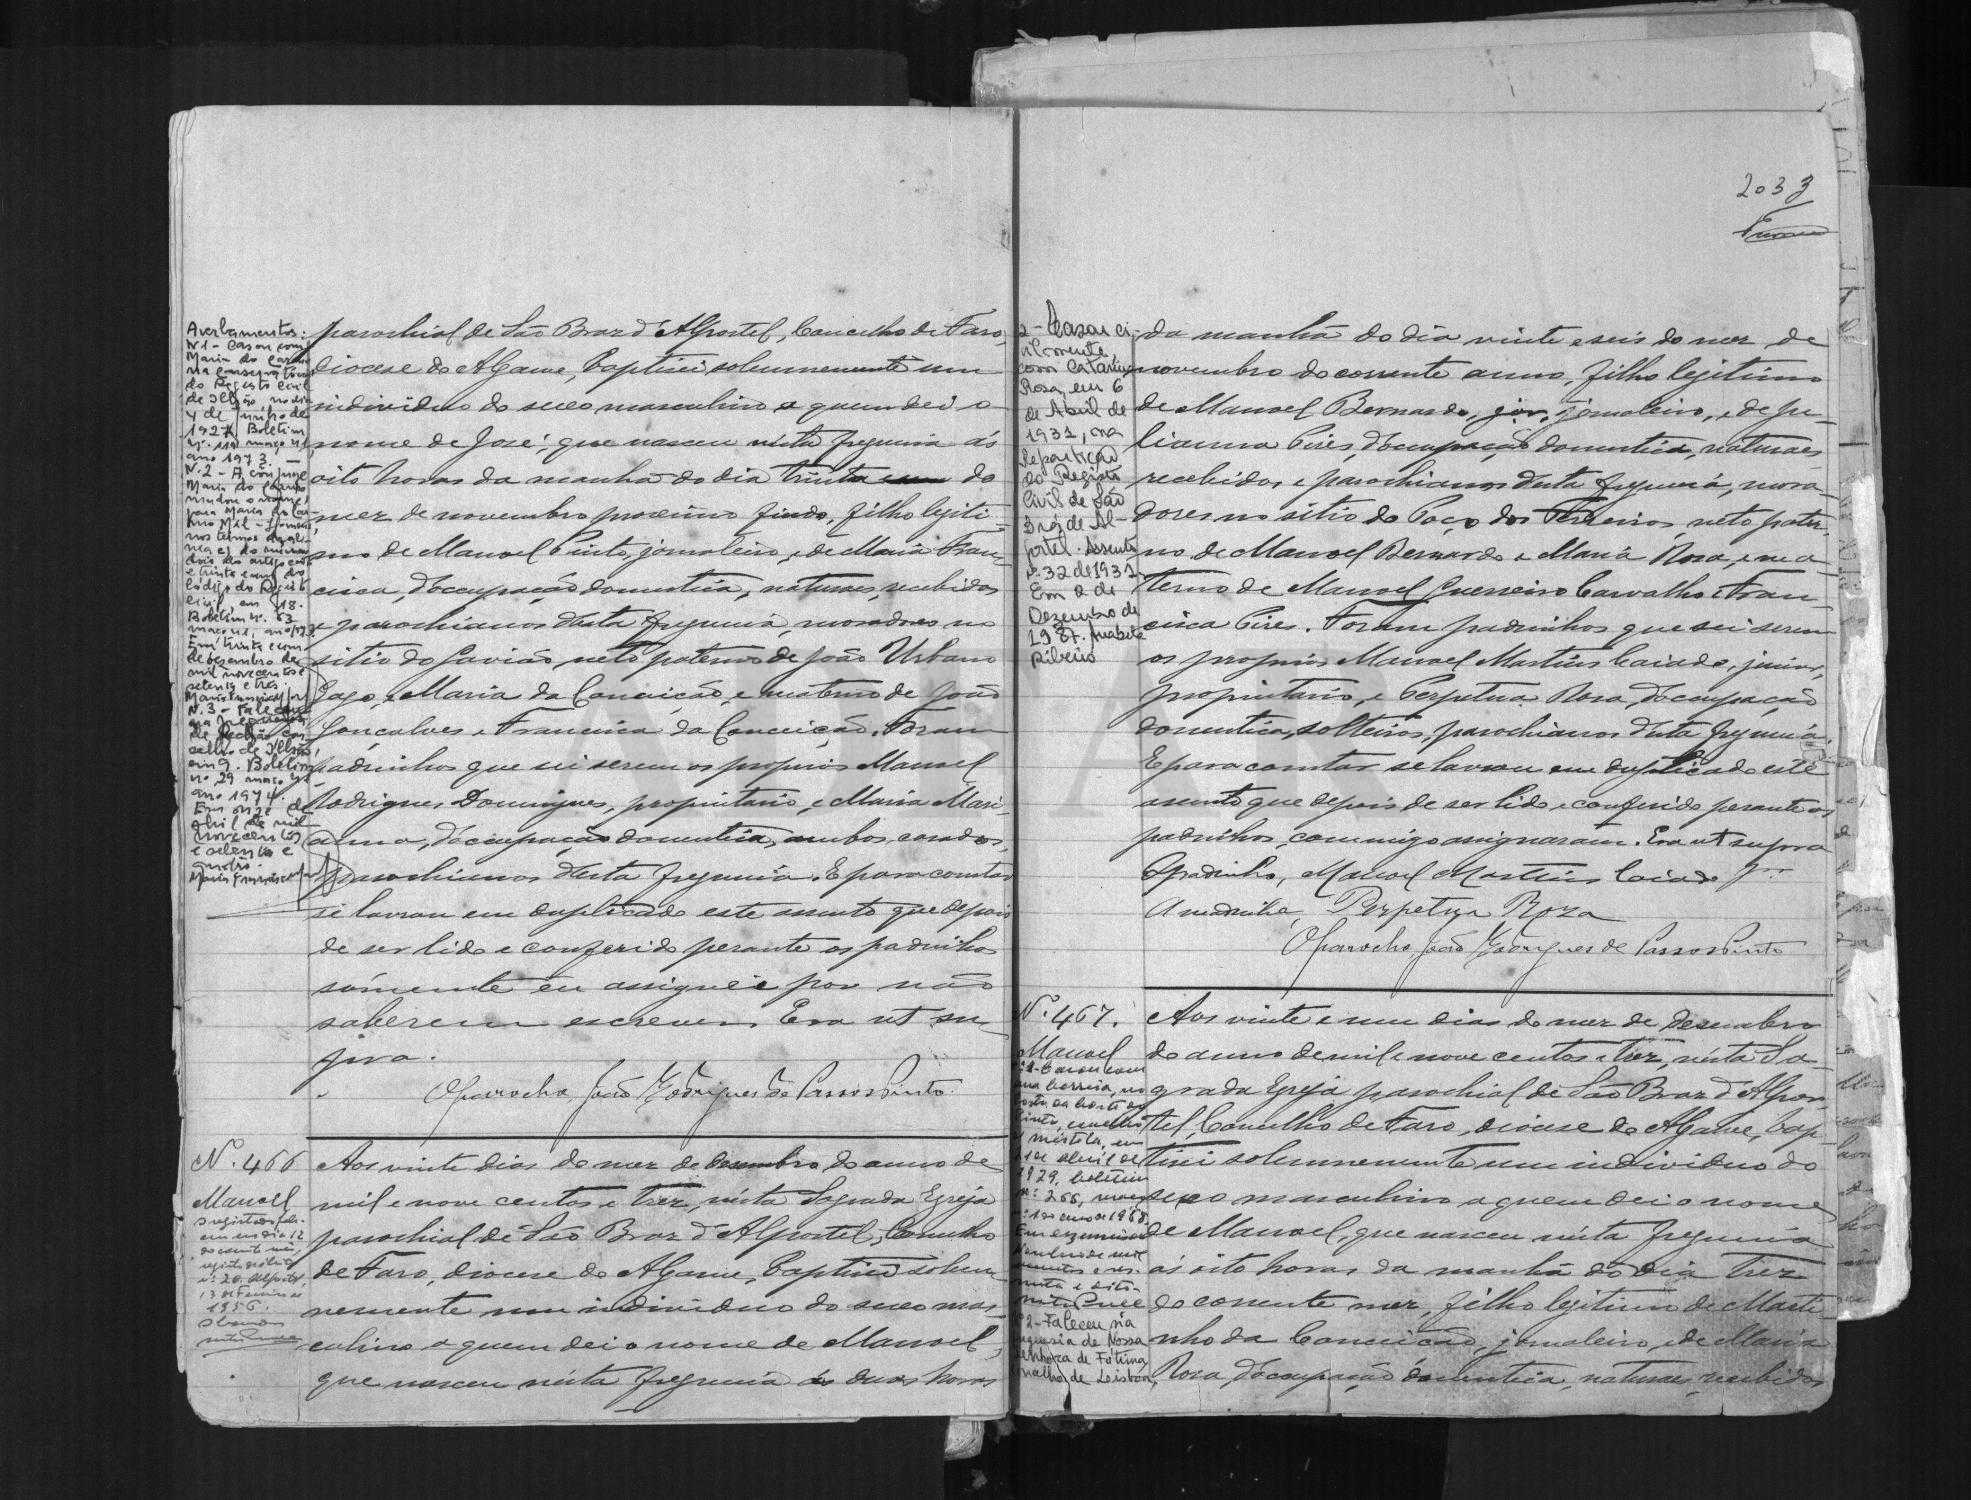 Averbamentos:
N.1 - Casou com
Maria do Carmo
na conservatória
do Registo Civil
de Olhão no dia
4 de Junho de
1927. Boletim
nº. 119 março 41
ano 1973.
N.2 - A conjuge
Maria do Carmo
mudou o nome
para Maria do Car-
mo Mil-Homens
nos termos
do Registo
Civil, em 18.
Boletim nº. 63
Em trinta e um
de dezembro de
mil novecentos e
setenta e três.
N.3 - Faleceu
na freguesia
de Pechão con-
celho de Olhão,
em 9. Boletim
nº 29 março 41
ano 1974.
Em onze de
Abril de mil
novecentos
e setenta e
quatro.
parochial de São Braz d'Alportel, Concelho de Faro,
diocese do Algarve, baptisei solemnemente um
individuo do sexo masculino a quem dei o
nome de José; que nasceu nésta freguesia ás
oito horas da manhã do dia trinta do
mez de novembro proximo findo, filho legiti-
mo de Manoel Pinto, jornaleiro, e de Maria Fran-
cisca, d'occupação domestica, naturaes, recebidos
e parochianos d'ésta freguesia, moradores no
sitio do Gavião, neto paterno de João Urbano
Gago, e Maria da Conceição, e materno de João
Gonçalves e Francisca da Conceição. Foram
padrinhos que sei serem os proprios Manoel
Rodrigues Domingues, proprietario, e Maria Mari-
anna, d'occupação domestica, ambos casados,
parochianos d'ésta freguesia. E para constar
se lavrou em duplicado este assento que depois
de ser lido e conferido perante os padrinhos
sómente eu assignei por não
saberem escrever. Era ut su-
pra.
O parocho João Rodrigues de Passos Pinto
N.º 466
Manoel
13 de Fevereiro de
1956.
Aos vinte dias do mez de dezembro do anno de
mil e nove centos e trez, nésta Sagrada Egreja
parochial de São Braz d'Alportel, Concelho
de Faro, diocese do Algarve, baptisei solem-
nemente um individuo do sexo mas-
culino a quem dei o nome de Manoel,
que nasceu nésta freguesia ás duas horas
2033
2 - Casou ci-
vilmente
com Catarina
Rosa, em 6
de Abril de
1931, na
Repartição
do Registo
Civil de São
Brás de Al-
portel. Assento
nº. 32 de 1931.
Em 2 de
Dezembro de
1987.
Ribeiro
da manhã do dia vinte e seis do mez de
novembro do corrente anno, filho legitimo
de Manoel Bernardo, jornaleiro, e de Ju-
lianna Pires, d'occupação domestica, naturaes,
recebidos e parochianos d'ésta freguesia, mora-
dores no sitio do Poço dos Ferreiros, neto pater-
no de Manoel Bernardo e Maria Rosa, e ma-
terno de Manoel Guerreiro Carvalho e Fran-
cisca Pires. Foram padrinhos que sei serem
os proprios Manoel Martins Caiado, junior,
proprietario, e Perpetua Rosa, d'occupação
domestica, solteiros, parochianos d'ésta freguesia.
E para constar se lavrou em duplicado este
assento que depois de ser lido e conferido perante os
padrinhos, commigo assignaram. Era ut supra
O padrinho, Manoel Martins Caiado Jor.
A madrinha, Perpetua Roza
O parocho, João Rodrigues de Passos Pinto
N.º 467.
Manoel
1929, boletim
nº 266,
2 - Faleceu na
freguesia de Nossa
Senhora de Fátima
concelho de Lisboa,
Aos vinte e um dias do mez de Dezembro
do anno de mil e nove centos e trez, nésta Sa-
grada Egreja parochial de São Braz d'Alpor-
tel, Concelho de Faro, diocese do Algarve, bap-
tisei solemnemente um individuo do
sexo masculino a quem dei o nome
de Manoel, que nasceu nésta freguesia
ás oito horas da manhã do dia trez
do corrente mez, filho legitimo de Marti-
nho da Conceição, jornaleiro, e de Maria
Rosa, d'occupação domestica, naturaes, recebidos